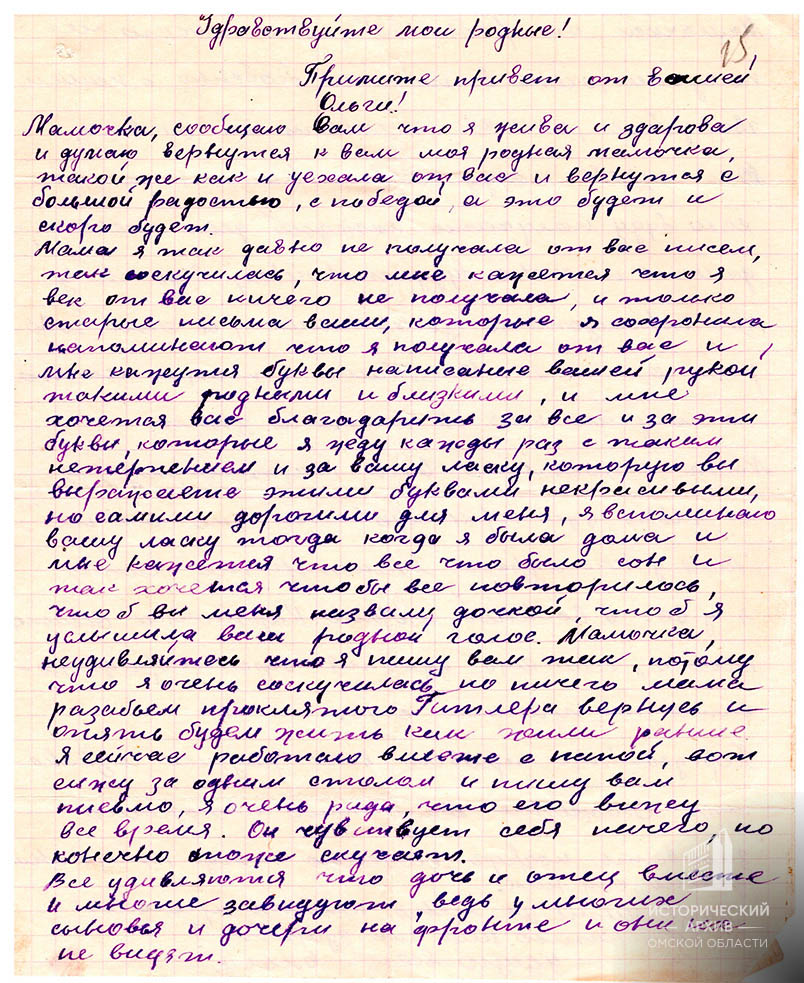 Здравствуйте мои родные!
15
Примите привет от вашей
Ольги!
Мамочка, сообщаю Вам что я жива и здарова
и думаю вернутся к вам моя родная мамочка,
такой же как и уехала от вас и вернутся с
большой радостью, с победой, а это будет и
скоро будет.
Мама я так давно не получала от вас писем,
так соскучилась, что мне кажется что я
век от вас ничего не получала, и только
старые письма ваши, которые я сохронила
напоминают что я получала от вас и
мне кажутся буквы написаные вашей рукой
такими родными и близкими, и мне
хочется вас благодарить за все и за эти
буквы, которые я жду кажды раз с таким
нетерпением и за вашу ласку, которую вы
выражаете этими буквами некрасивыми,
но самими дорогими для меня, я вспоминаю
вашу ласку тогда когда я была дома и
мне кажется что все что было сон и
так хочется чтобы все повторилось,
чтоб вы меня назвали дочкой, чтоб я
услышила ваш родной голос. Мамочка,
неудивляйтесь что я пишу вам так, потому
что я очень соскучилась, но ничего мама
разабьем проклятого Гитлера вернусь и
опять будем жить как жили раньше.
Я сейчас работаю вместе с папой, вот
сижу за одним столом и пишу вам
письмо, я очень рада, что его вижу
все время. Он чувствует себя ничего, но
конечно тоже скучает.
Все удивляются что дочь и отец вместе
и многие завидуют, ведь у многих
сыновья и дочери на фронте и они их
не видят.
ИСТОРИЧЕСКИЙ
АРХИВ
ОМСКОЙ ОБЛАСТИ